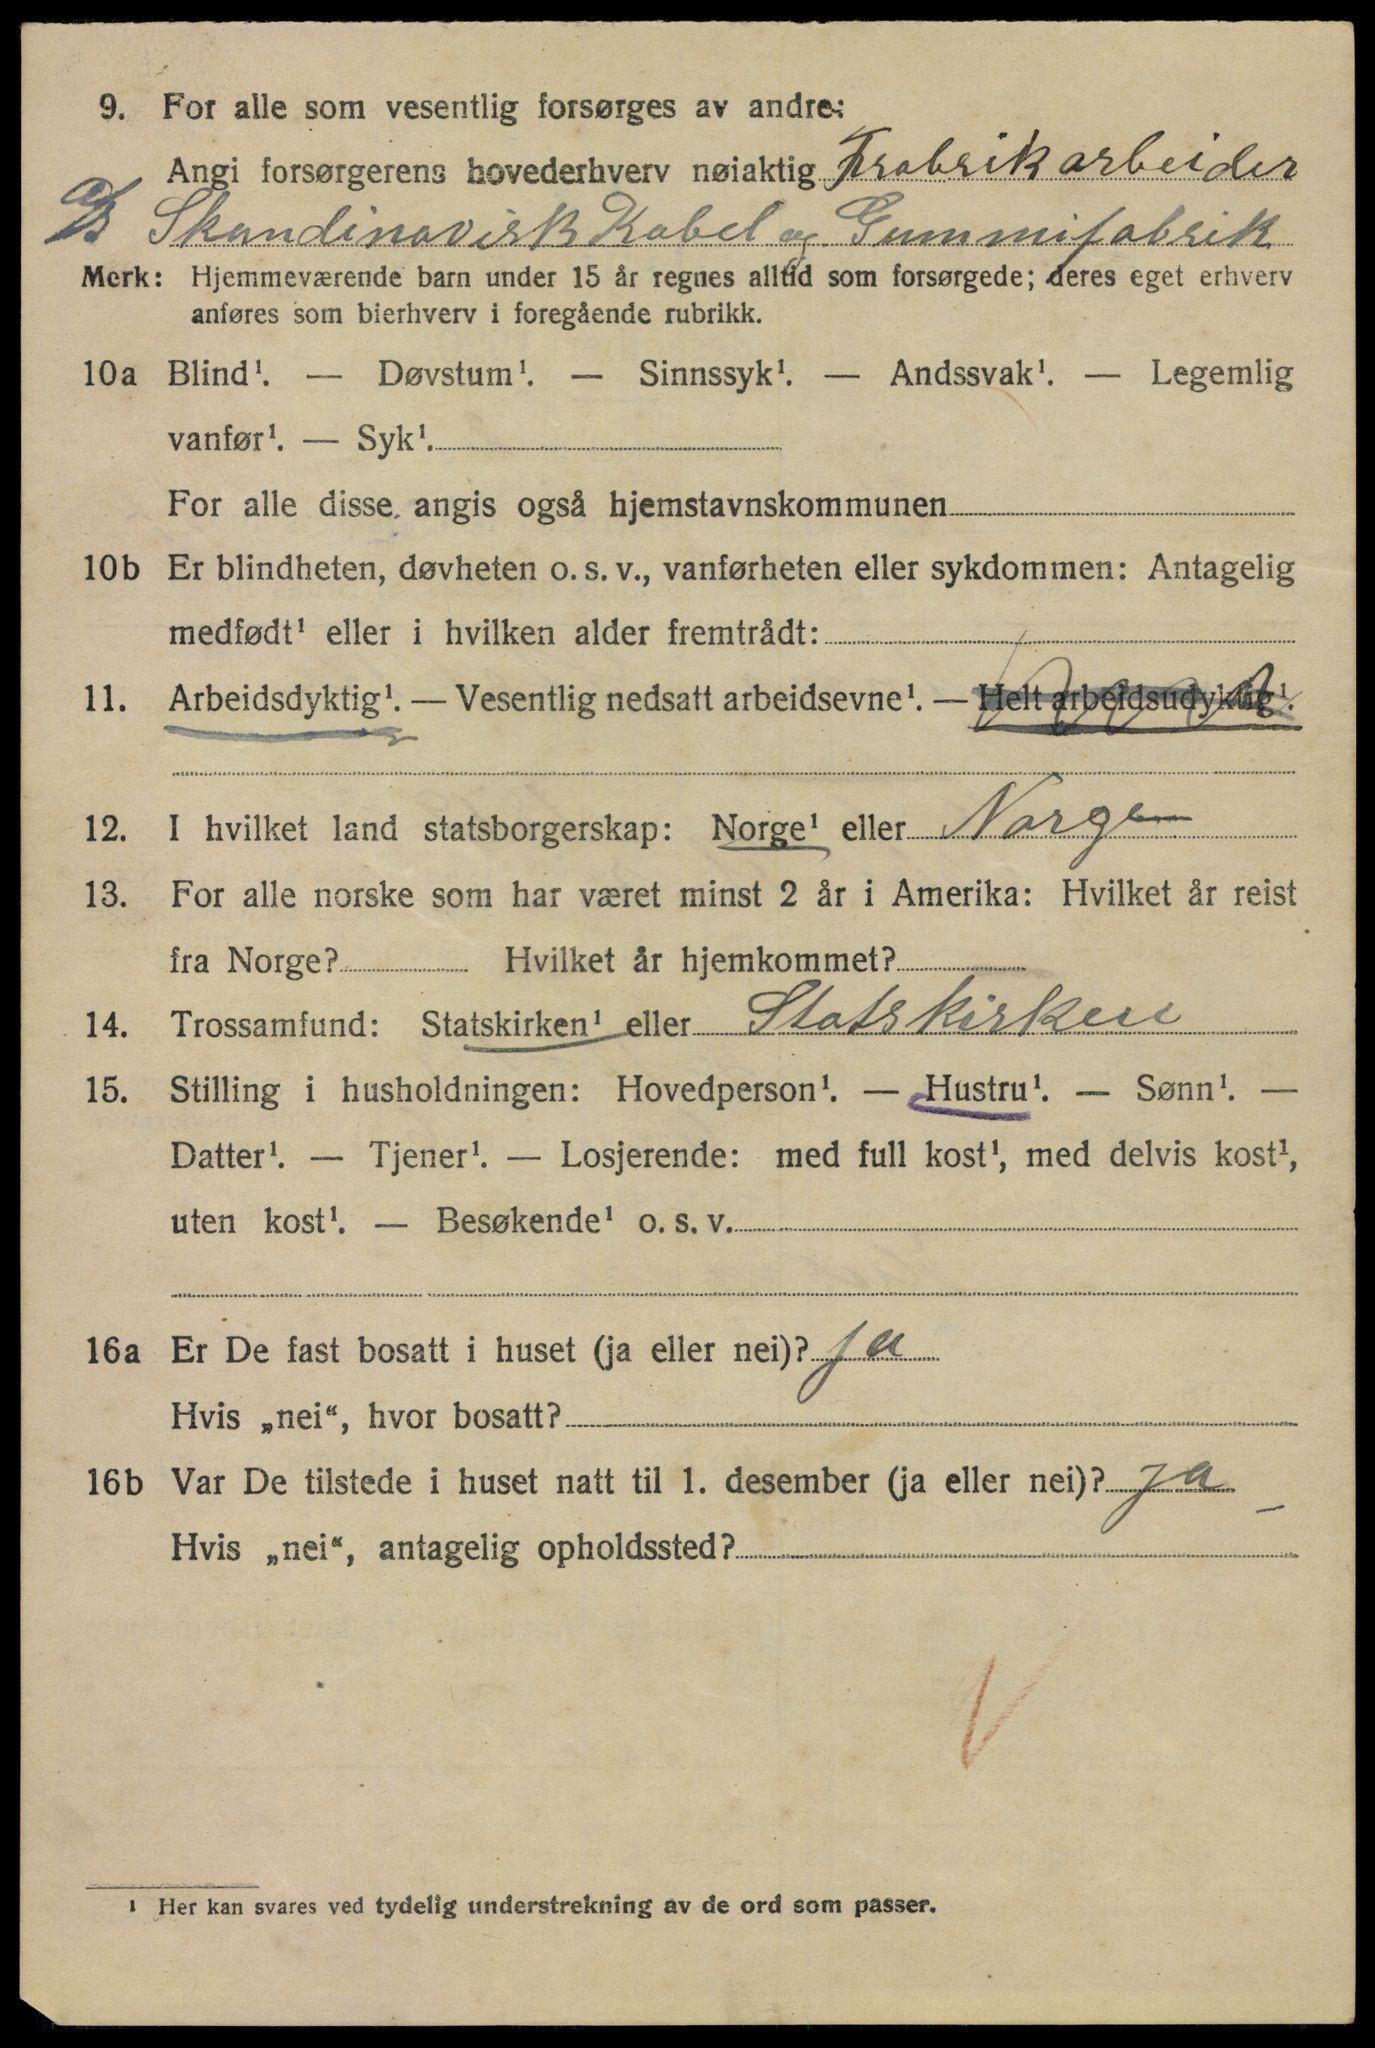 9. For alle som vesentlig forsørges av andre:
Angi forsørgerens hovederhverv nøiaktig Frabrikarbeider
A/S Skandinavisk Kabel og Gummifabrik
Merk: Hjemmeværende barn under 15 år regnes alltid som forsørgede; deres eget erhverv
anføres som bierhverv i foregående rubrikk.
10a Blind¹. — Døvstum¹. — Sinnssyk¹. — Andssvak¹. — Legemlig
vanfør¹. — Syk¹.
For alle disse angis også hjemstavnskommunen
10b Er blindheten, døvheten o. s. v., vanførheten eller sykdommen: Antagelig
medfødt¹ eller i hvilken alder fremtrådt:
11. Arbeidsdyktig¹. — Vesentlig nedsatt arbeidsevne¹. — Helt arbeidsudyktig¹.
12. I hvilket land statsborgerskap: Norge¹ eller Norge
13. For alle norske som har været minst 2 år i Amerika: Hvilket år reist
fra Norge? Hvilket år hjemkommet?
14. Trossamfund: Statskirken¹ eller Statskirken
15. Stilling i husholdningen: Hovedperson¹. — Hustru¹. — Sønn¹. —
Datter¹. — Tjener¹. — Losjerende: med full kost¹, med delvis kost¹,
uten kost¹. — Besøkende¹ o. s. v.
16a Er De fast bosatt i huset (ja eller nei)? ja
Hvis „nei“, hvor bosatt?
16b Var De tilstede i huset natt til 1. desember (ja eller nei)? ja
Hvis „nei“, antagelig opholdssted?
¹ Her kan svares ved tydelig understrekning av de ord som passer.